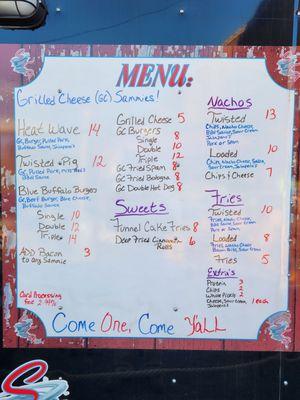 MENU:
Grilled Cheese (GC) Sammies!
Heat Wave 14
GC, Burger, Pulled Pork,
Buffalo Sauce, Jalapeno's
Twisted Pig 12
GC, Pulled Pork,
BBQ Sauce
Blue Buffalo Burgers
GC, Beef Burger, Blue Cheese,
Buffalo Sauce
Single 10
Double 12
Triple 14
ADD Bacon 3
to any Sammie
Card Processing
Fee
Grilled Cheese 5
GC Burgers
Single 8
Double 10
Triple 12
GC Fried Spam 8
GC Fried Bologna 8
GC Double Hot Dog 8
Sweets
Funnel Cake Fries 8
Deep Fried Cinnamon 6
Rolls
Nachos
Twisted 13
Chips, Nacho Cheese,
BBQ Sauce, Sour Cream
Jalapeno's
Pork or Spam
Loaded 10
Chips, Nacho Cheese, Salsa,
Sour Cream, Jalapeno's
Chips & Cheese 7
Fries
Twisted 10
Fries, Nacho Cheese,
BBQ Sauce, Sour Cream
Pork or Spam
Loaded 8
Fries, Nacho Cheese
Bacon Bits, Sour Cream
Fries 5
Extra's
Protein 3
Chips 2
Whole Pickle 2
Cheese, Sour Cream, 1 each
Jalapeno's
Come One, Come Y'all